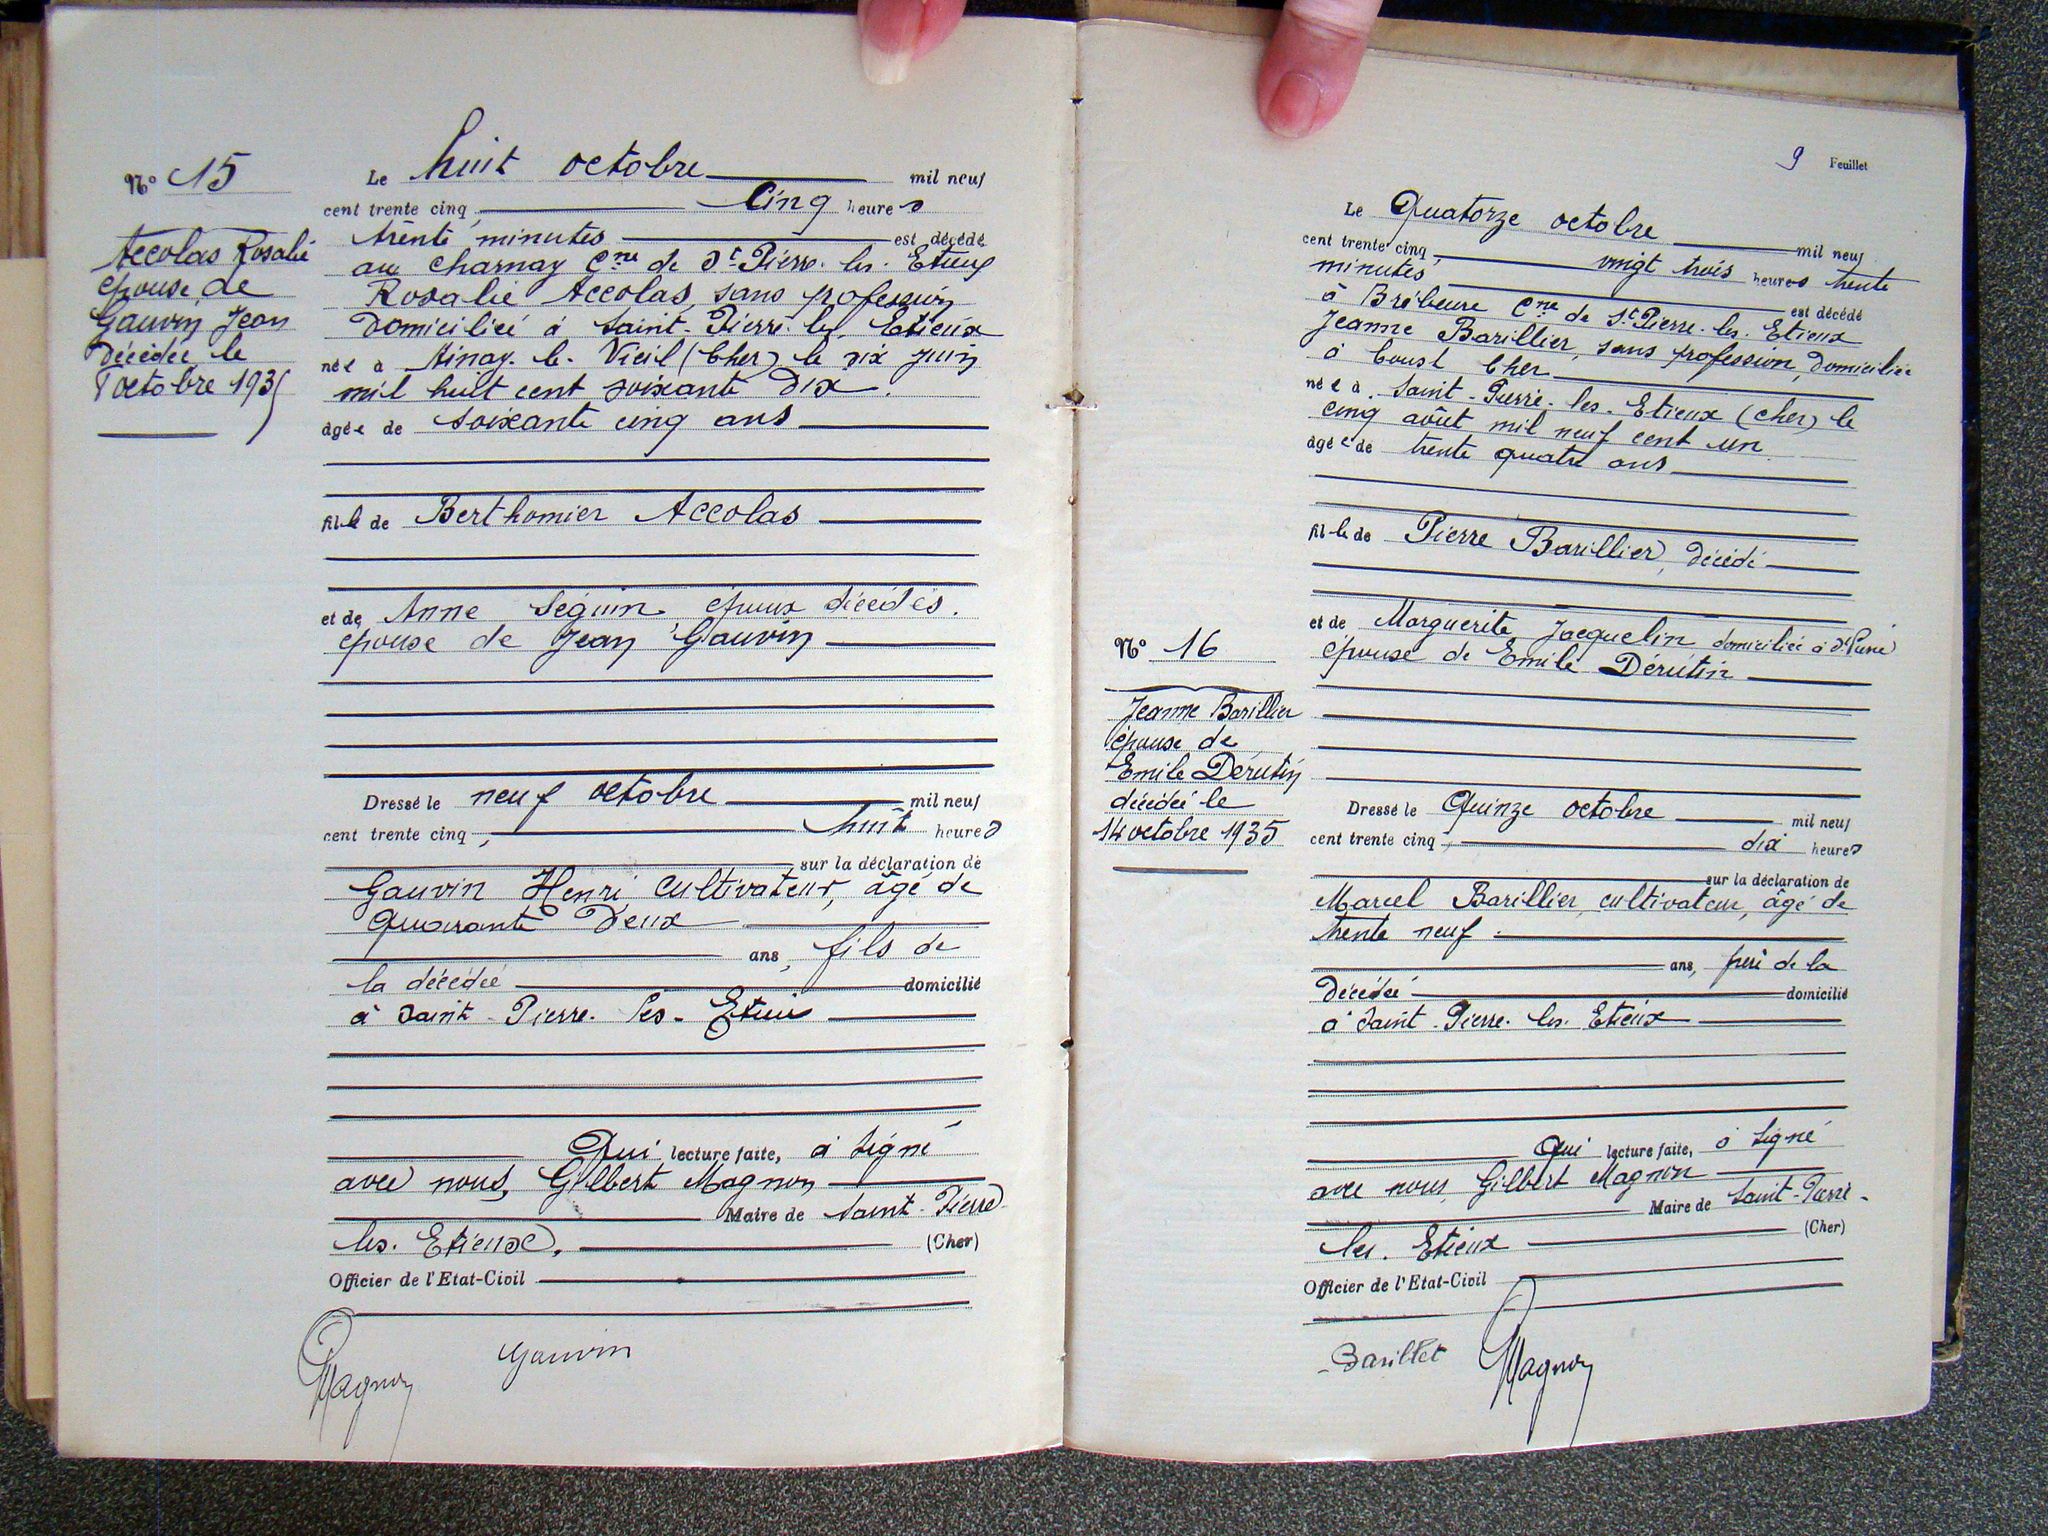 N° 15
Accolas Rosalie
épouse de
Gauvin Jean
décédée le
8 octobre 1935
Le huit octobre mil neuf
cent trente cinq, Cinq heures
trente minutes est décédé
au Charnay Cne de St Pierre-les-Etieux
Rosalie Accolas, sans profession
domiciliée à Saint-Pierre-les-Etieux
née à Ainay-le-Vieil (Cher) le six juin
mil huit cent soixante dix.
âgée de soixante cinq ans
fille de Berthomier Accolas
et de Anne Séguin époux décédés.
épouse de Jean Gauvin
Dressé le neuf octobre mil neuf
cent trente cinq, huit heures
sur la déclaration de
Gauvin Henri, cultivateur, âgé de
quarante deux
ans, fils de
la décédée domicilié
à Saint-Pierre-les-Etieux
Qui lecture faite, a signé
avec nous, Gilbert Magnon
Maire de Saint-Pierre-
les-Etieux. (Cher)
Officier de l'Etat-Civil
Magnon Gauvin
9 Feuillet
N° 16
Jeanne Barillier
épouse de
Emile Dérutin
décédée le
14 octobre 1935
Le Quatorze octobre mil neuf
cent trente cinq, vingt trois heures trente
minutes est décédé
à Cne de St Pierre-les-Etieux
Jeanne Barillier, sans profession, domiciliée
à Coust Cher
née à Saint-Pierre-les-Etieux (Cher) le
cinq août mil neuf cent un
âgée de trente quatre ans
fille de Pierre Barillier, décédé
et de Marguerite Jacquelin domiciliée à St Pierre
épouse de Emile Dérutin
Dressé le Quinze octobre mil neuf
cent trente cinq, dix heures
sur la déclaration de
Marcel Barillier, cultivateur, âgé de
trente neuf.
ans, de la
décédée domicilié
à Saint-Pierre-les-Etieux
Qui lecture faite, a signé
avec nous, Gilbert Magnon
Maire de Saint-Pierre-
les-Etieux (Cher)
Officier de l'Etat-Civil
Barillet Magnon